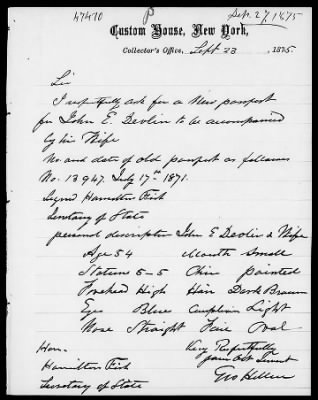 47470
β
Sep. 27/1875
Custom House, New York,
Collector's Office, Sept 23 1875
Sir
I respectfully ask for a New passport
for John E. Devlin to be accompanied
by his Wife
No and date of old passport as follows
No. 13947. July 17th 1871.
Signed Hamilton Fish
Secretary of State
personal description John E Devlin & Wife
Age 54 Mouth Small
Stature 5-5 Chin pointed
Forehead High Hair Dark Brown
Eyes Blue Complexion Light
Nose Straight Face Oval
Very Respectfully
Hon. your Obt Servant
Hamilton Fish
Secretary of State